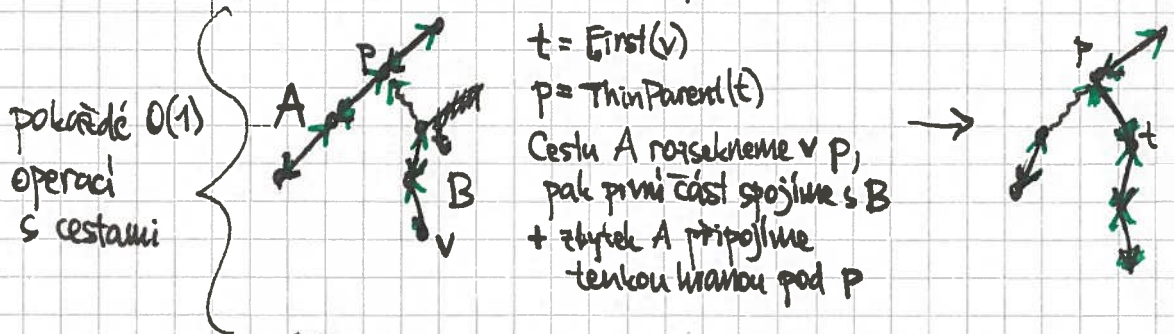 pokaždé O(1)
operací
s cestami
A
p
t
B
v
t = First(v)
p = ThinParent(t)
Cestu A rozsekneme v p,
pak první část spojíme s B
+ zbytek A připojíme
tenkou hranou pod p
p
t